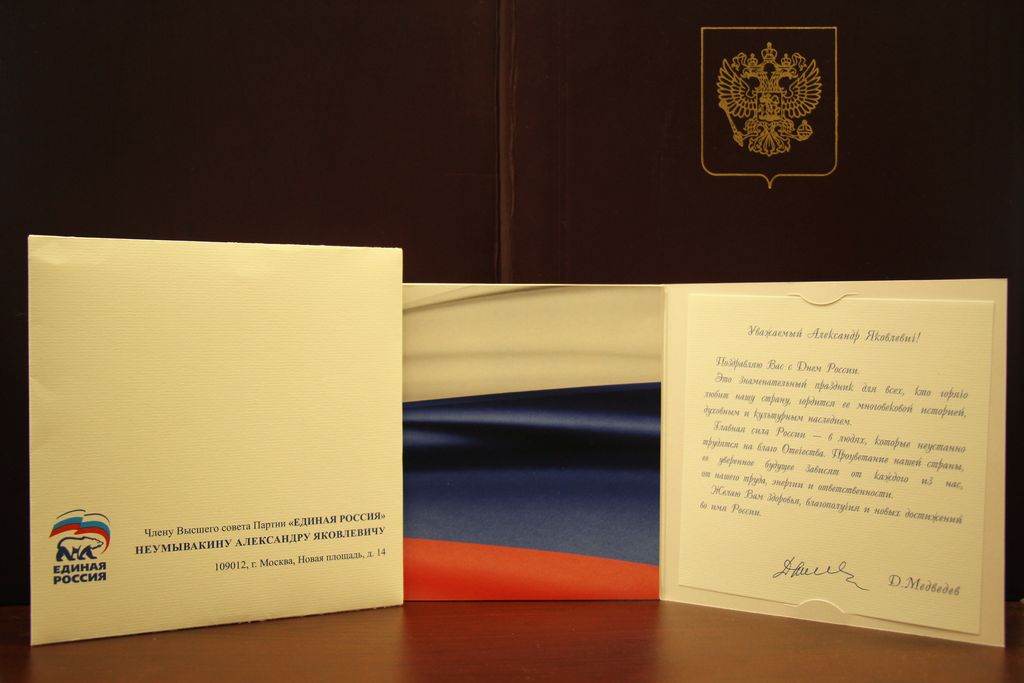 Члену Высшего совета Партии «ЕДИНАЯ РОССИЯ»
НЕУМЫВАКИНУ АЛЕКСАНДРУ ЯКОВЛЕВИЧУ
109012, г. Москва, Новая площадь, д. 14
ЕДИНАЯ
РОССИЯ
Уважаемый Александр Яковлевич!
Поздравляю Вас с Днем России.
Это знаменательный праздник для всех, кто горячо
любит нашу страну, гордится ее многовековой историей,
духовным и культурным наследием.
Главная сила России — в людях, которые неустанно
трудятся на благо Отечества. Процветание нашей страны,
ее уверенное будущее зависят от каждого из нас,
от нашего труда, энергии и ответственности.
Желаю Вам здоровья, благополучия и новых достижений
во имя России.
Д.Медведев